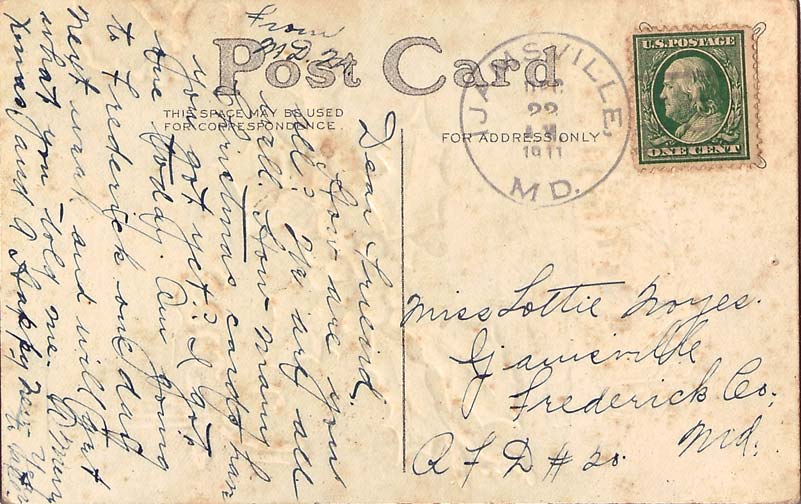 Post Card
THIS SPACE MAY BE USED
FOR CORRESPONDENCE.
FOR ADDRESS ONLY
IJAMSVILLE,
22
1911
MD.
U.S. POSTAGE
ONE CENT
Miss Lottie Noyes.
Ijamsville
Frederick Co.,
Md.
R F D # 20.
From
Dear Friend.
How are you
all? We are all
well. How many
Christmas cards have
you got yet? I got
one today. Am going
to Frederick one day
next week and will get
what you told me. A Merry
Xmas and A Happy New Year